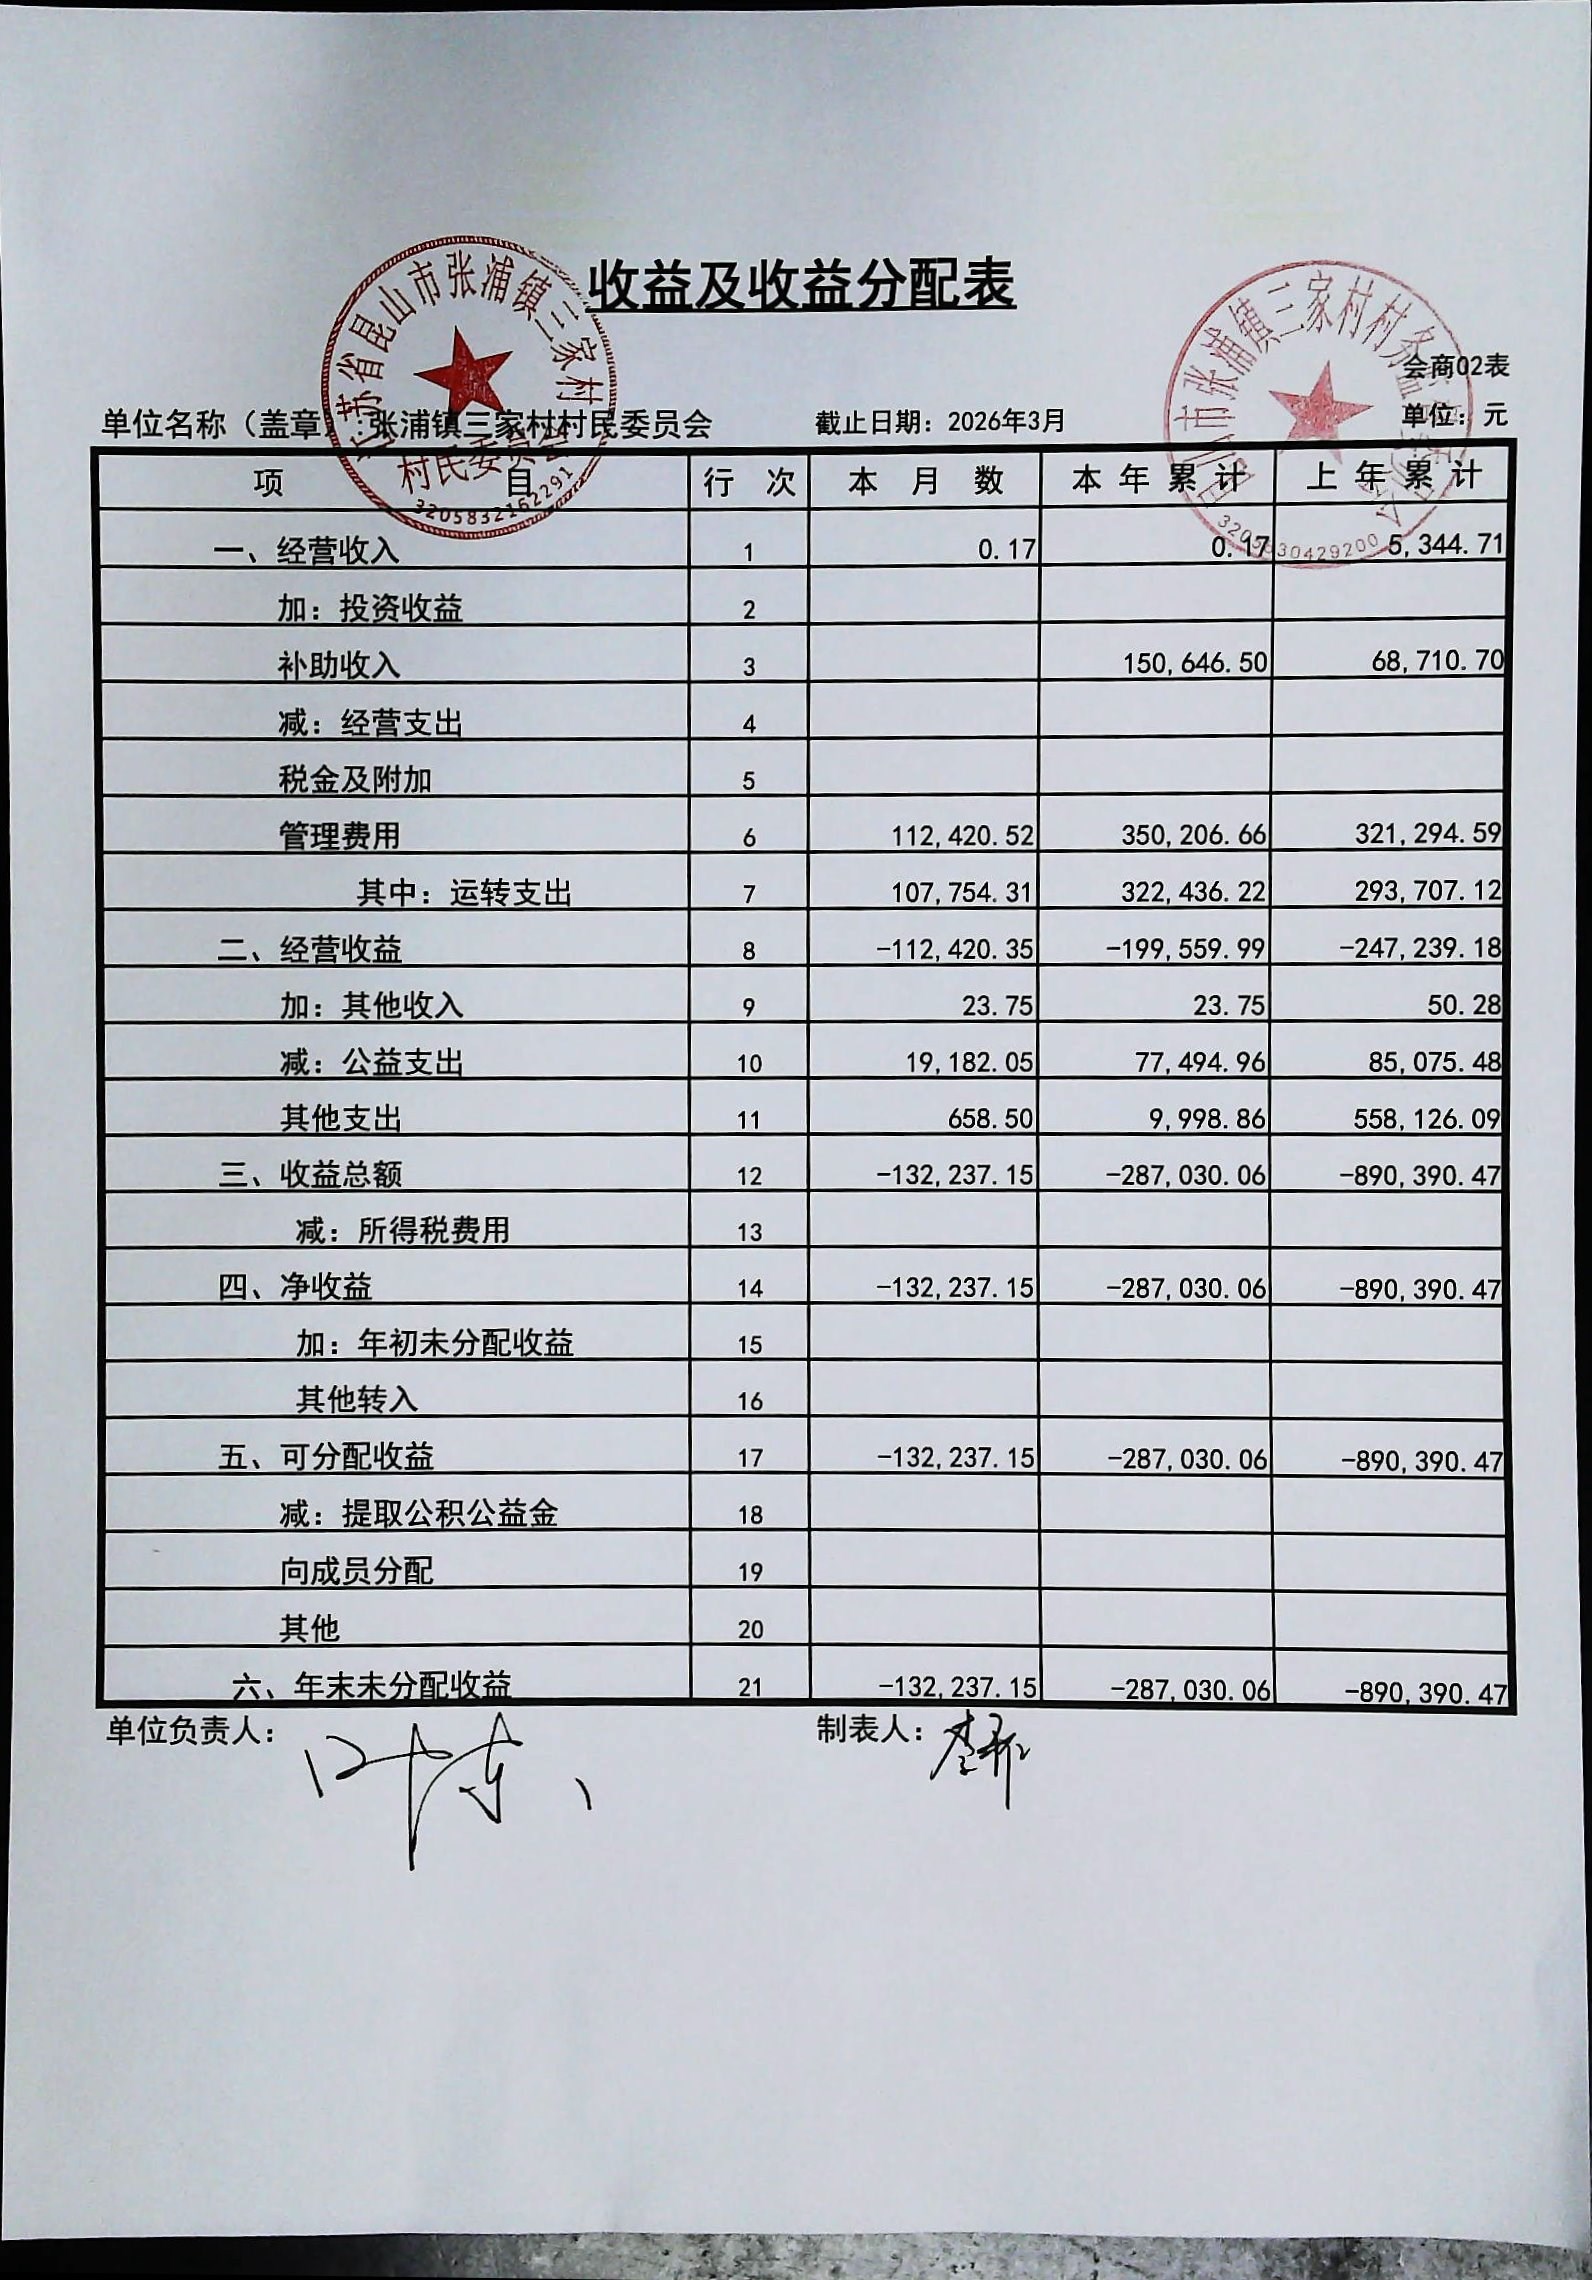 收益及收益分配表
会商02表
单位名称（盖章）：张浦镇三家村村民委员会 截止日期：2026年3月 单位：元
江苏省昆山市张浦镇三家村
村民委员会
3205832162291
山市张浦镇三家村村务监
3205830429200
项 目 行 次 本 月 数 本 年 累 计 上 年 累 计
一、经营收入 1 0.17 0.17 5,344.71
加：投资收益 2
补助收入 3 150,646.50 68,710.70
减：经营支出 4
税金及附加 5
管理费用 6 112,420.52 350,206.66 321,294.59
其中：运转支出 7 107,754.31 322,436.22 293,707.12
二、经营收益 8 -112,420.35 -199,559.99 -247,239.18
加：其他收入 9 23.75 23.75 50.28
减：公益支出 10 19,182.05 77,494.96 85,075.48
其他支出 11 658.50 9,998.86 558,126.09
三、收益总额 12 -132,237.15 -287,030.06 -890,390.47
减：所得税费用 13
四、净收益 14 -132,237.15 -287,030.06 -890,390.47
加：年初未分配收益 15
其他转入 16
五、可分配收益 17 -132,237.15 -287,030.06 -890,390.47
减：提取公积公益金 18
向成员分配 19
其他 20
六、年末未分配收益 21 -132,237.15 -287,030.06 -890,390.47
单位负责人： 制表人：